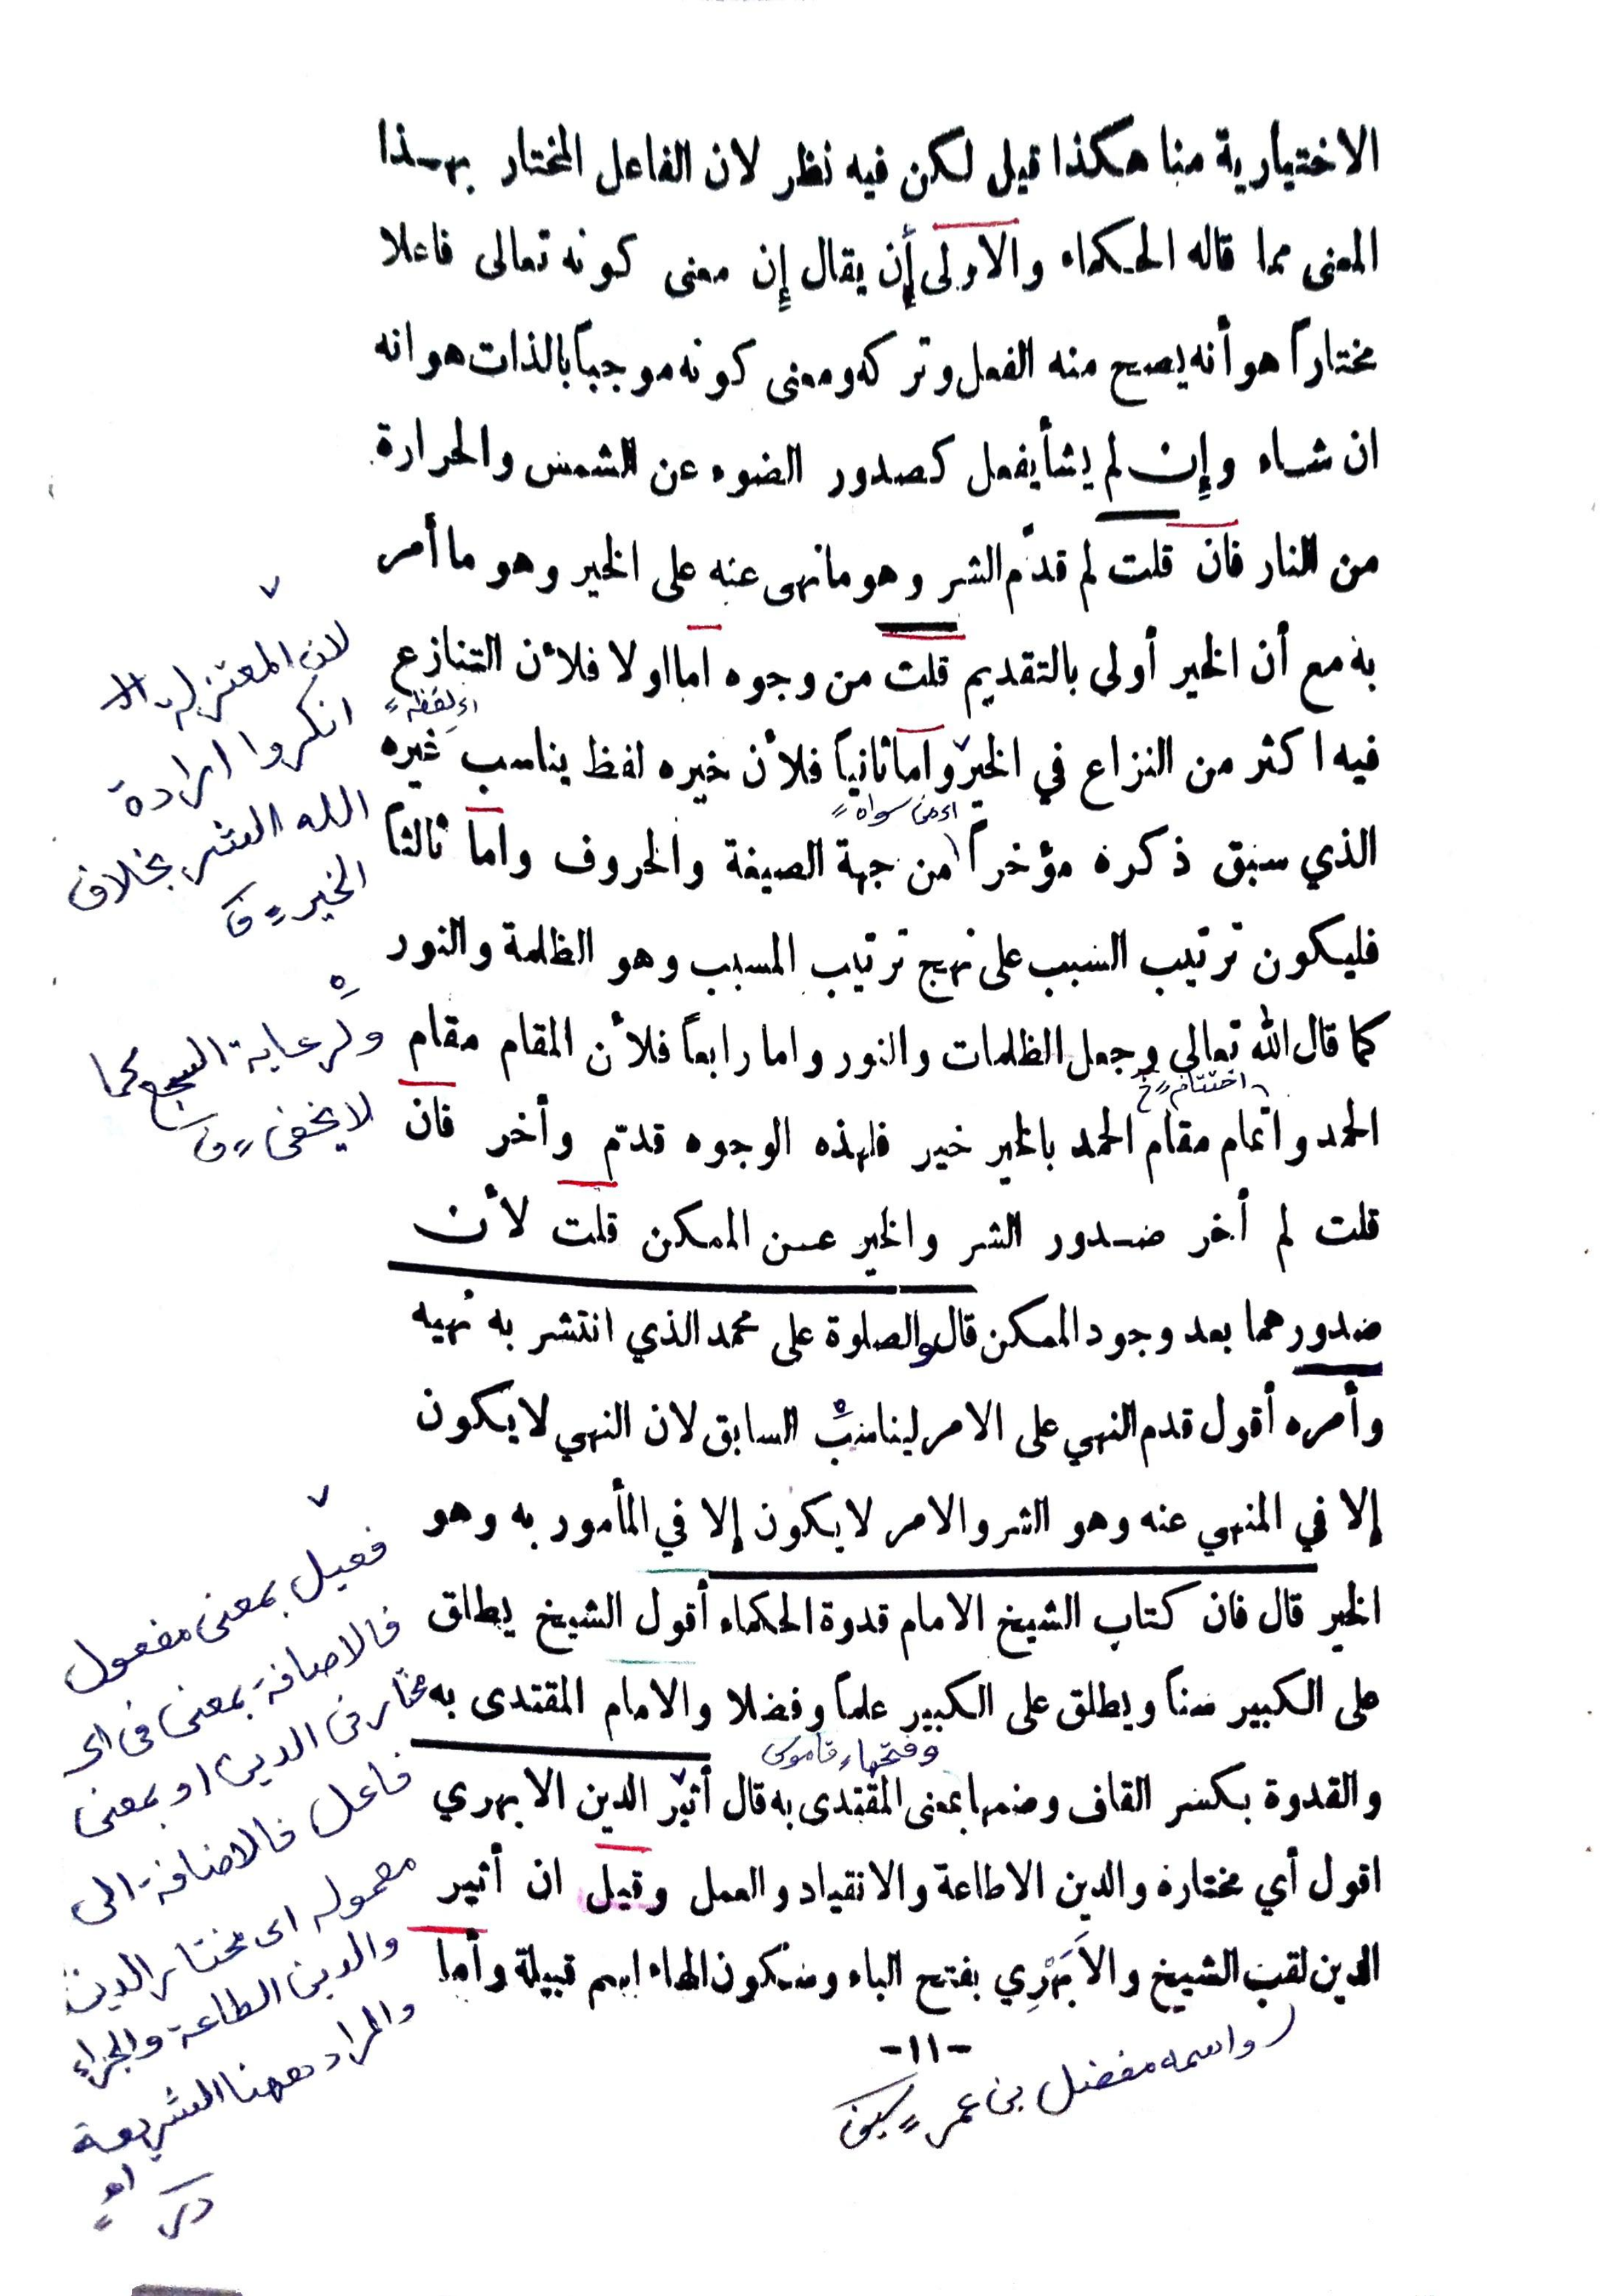 الاختيارية منا هكذا قيل لكن فيه نظر لان الفاعل المختار بهذا
المعنى مما قاله الحكماء والاولى أن يقال إن معنى كونه تعالى فاعلا
مختاراً هو أنه يصح منه الفعل وتركه ومعنى كونه موجباً بالذات هو انه
ان شاء وإن لم يشأ يفعل كصدور الضوء عن الشمس والحرارة
من النار فان قلت لم قدّم الشر وهو ما نهى عنه على الخير وهو ما أمر
به مع أن الخير أولى بالتقديم قلت من وجوه اما اولا فلأن التنازع
فيه اكثر من النزاع في الخير وأما ثانياً فلأن خيره لفظ يناسب غيره
الذي سبق ذكره مؤخراً من جهة الصيغة والحروف وأما ثالثاً
فليكون ترتيب السبب على نهج ترتيب المسبب وهو الظلمة والنور
كما قال الله تعالى وجعل الظلمات والنور واما رابعاً فلأن المقام مقام
الحمد واتمام مقام الحمد بالخير خير فلهذه الوجوه قدّم وأخر فان
قلت لم أخر صدور الشر والخير عن الممكن قلت لأن
صدورهما بعد وجود الممكن قال والصلوة على محمد الذي انتشر به نهيه
وأمره أقول قدم النهي على الامر ليناسب السابق لان النهي لا يكون
إلا في المنهي عنه وهو الشر والامر لا يكون إلا في المأمور به وهو
الخير قال فان كتاب الشيخ الامام قدوة الحكماء أقول الشيخ يطلق
على الكبير سناً ويطلق على الكبير علماً وفضلا والامام المقتدى به
والقدوة بكسر القاف وضمها بمعنى المقتدى به قال أثير الدين الابهري
اقول أي مختاره والدين الاطاعة والانقياد والعمل وقيل ان أثير
الدين لقب الشيخ والأَبَهْرِي بفتح الباء وسكون الهاء اسم قبيلة وأما
-١١-
لان المعتزلة
انكروا ارادة
الله الشر بخلاف
الخير
اى لفظه
اى من سواه
ولرعاية السجع كما
لا يخفى
اختتام
وفتحها قاموس
فعيل بمعنى مفعول
فالاضافة بمعنى فى اى
مختار فى الدين او بمعنى
فاعل فالاضافة الى
معموله اى مختار الدين
والدين الطاعة والجزاء
والمراد ههنا الشريعة
واسمه مفضل بن عمر